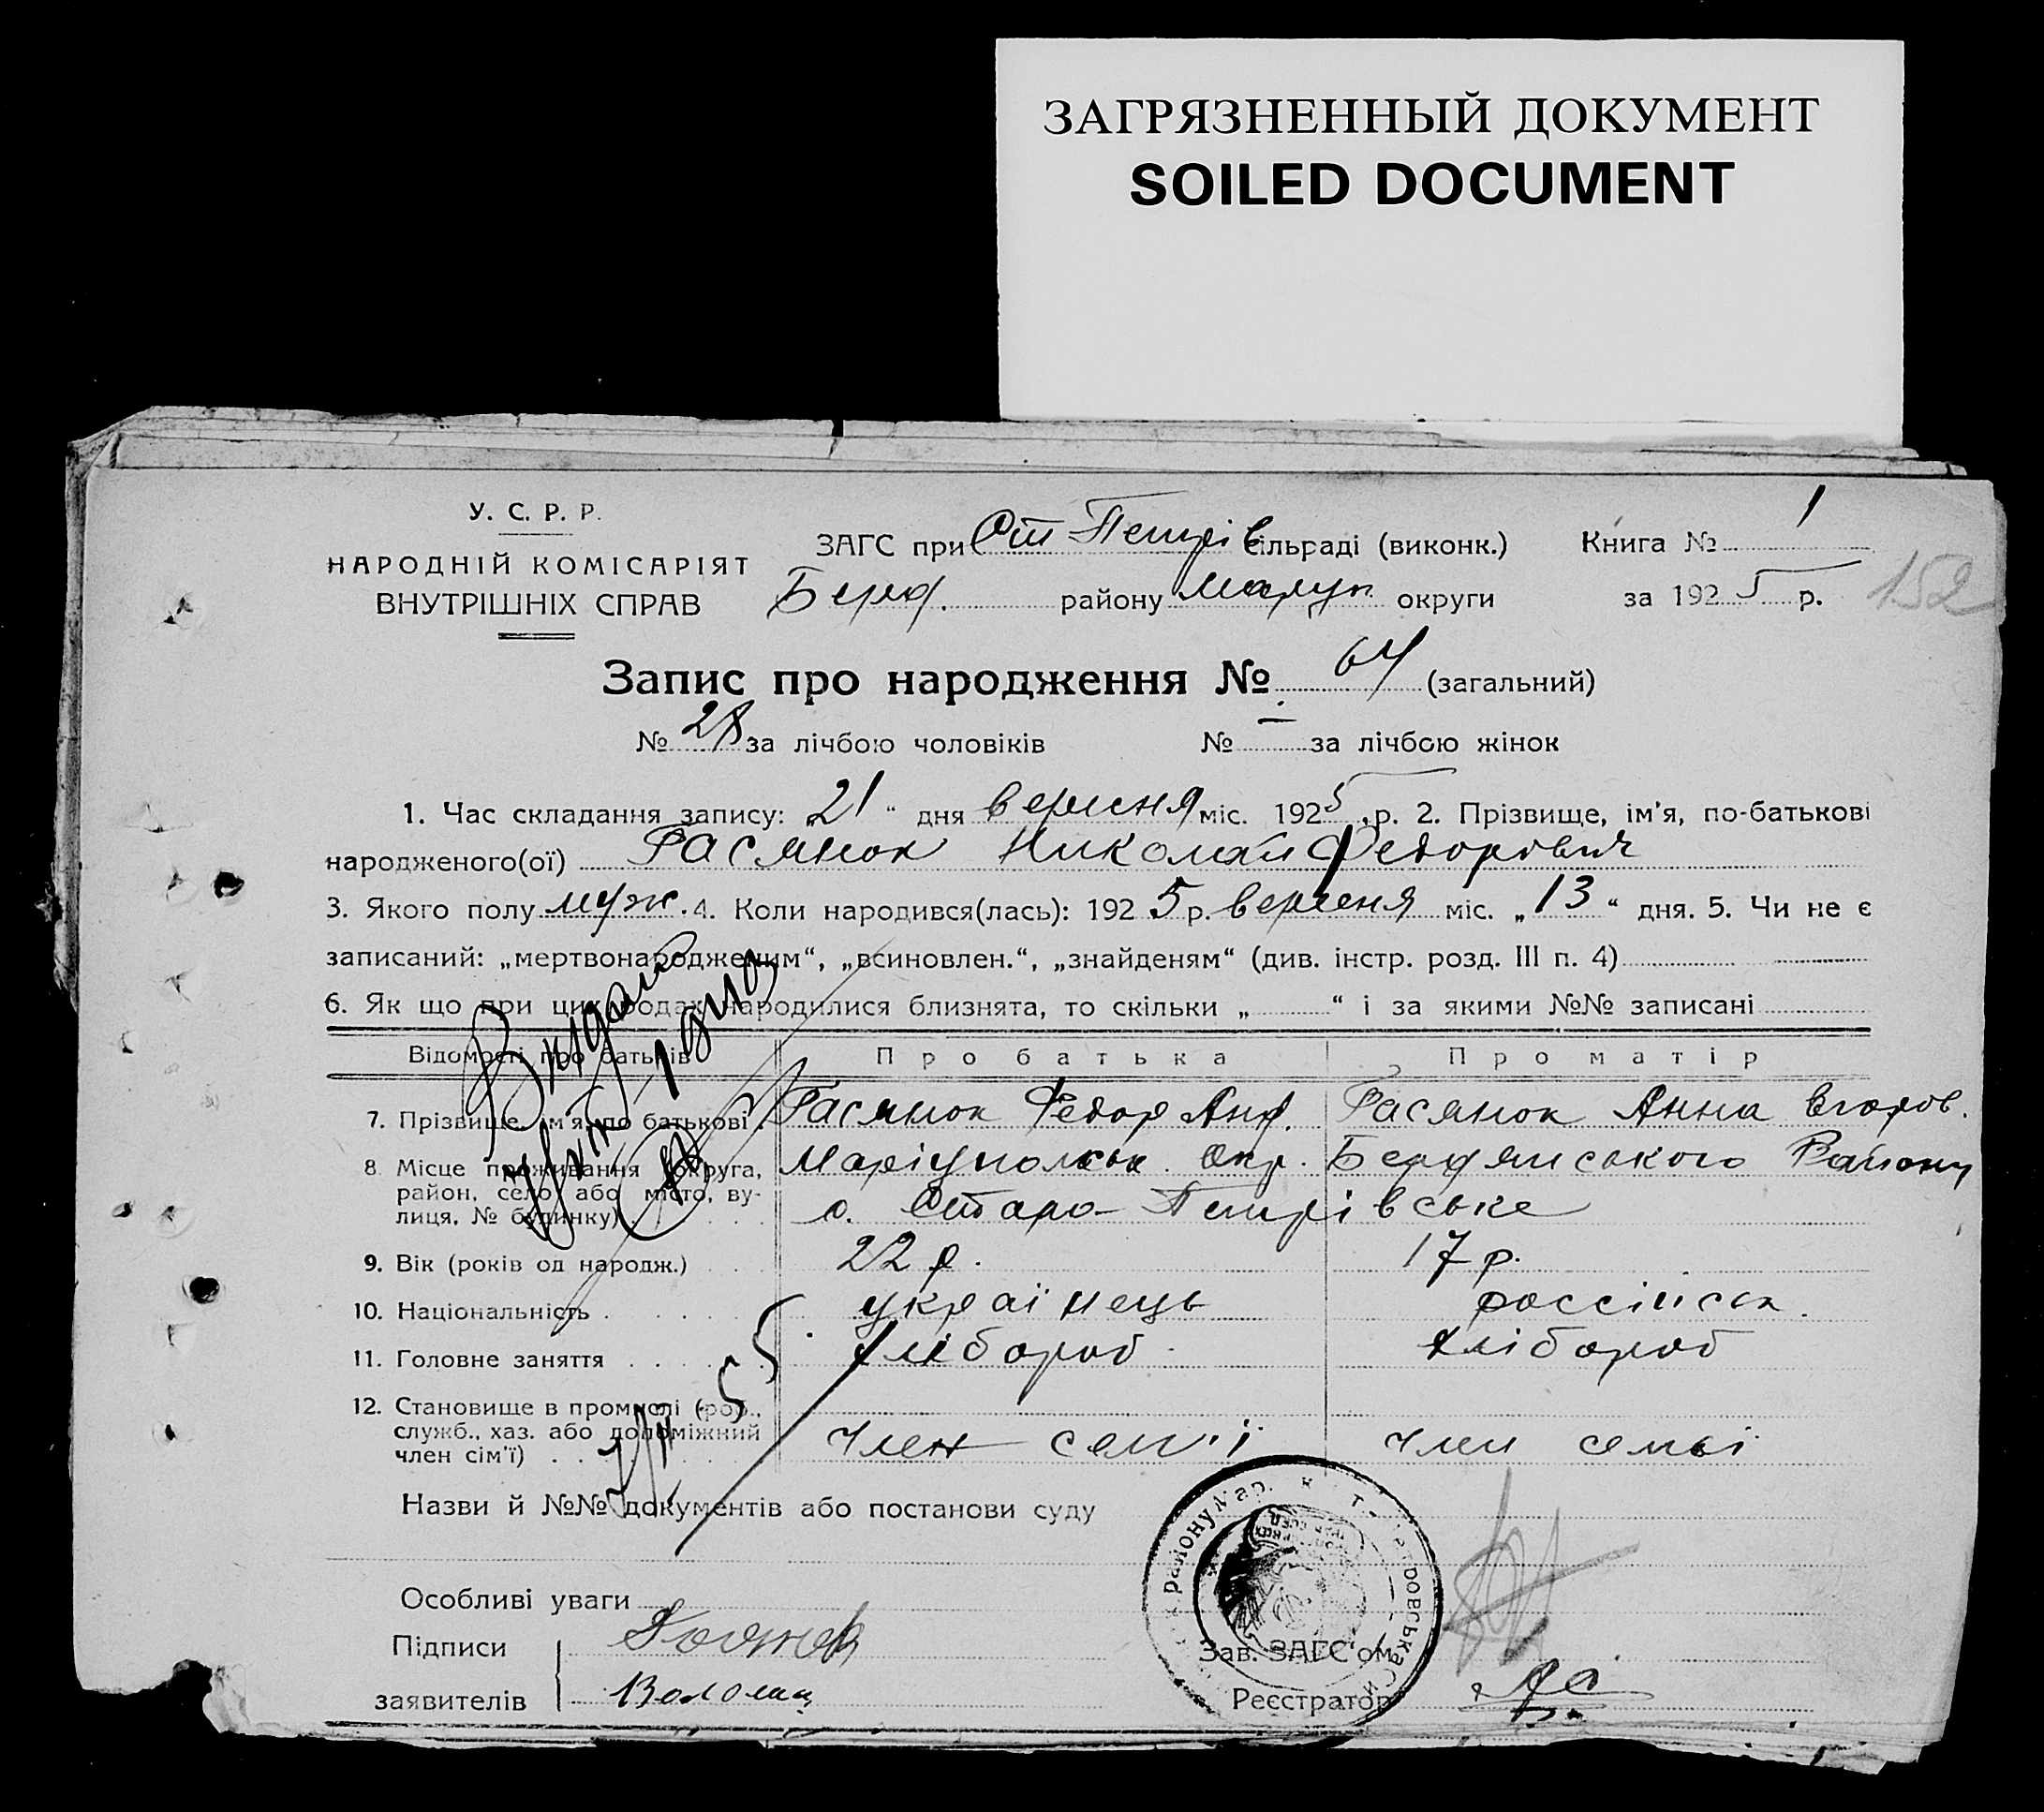 ЗАГРЯЗНЕННЫЙ ДОКУМЕНТ
SOILED DOCUMENT
У. С. Р. Р.
НАРОДНІЙ КОМІСАРІЯТ
ВНУТРІШНІХ СПРАВ
ЗАГС при Ст Петрів сільраді (виконк.) Книга № 1
Берд. району Маріуп. округи за 1925 р.
152
Запис про народження № 64 (загальний)
№ 28 за лічбою чоловіків № - за лічбою жінок
1. Час складання запису: „21“ дня вересня міс. 1925 р. 2. Прізвище, ім'я, по-батькові
народженого(ої) Гасянок Николай Федорович
3. Якого полу муж. 4. Коли народився(лась): 1925 р. вересня міс. „13“ дня. 5. Чи не є
записаний: „мертвонародженим“, „всиновлен.“, „знайденям“ (див. інстр. розд. III п. 4)
6. Як що при цих родах народилися близнята, то скільки „ “ і за якими №№ записані
Відомості про батьків Про батька Про матір
7. Прізвище, ім'я, по батькові Гасянок Федор Анд. Гасянок Анна Егоров.
8. Місце проживання (округа, район, село або місто, вулиця, № будинку) Маріупольськ. Окр. Бердянського Району
с. Старо-Петрівське
9. Вік (років од народж.) 22 р. 17 р.
10. Національність украінець россійськ.
11. Головне заняття хлібороб хлібороб
12. Становище в промислі (роб., служб., хаз. або допоміжний член сім'ї) член сем'ї член семьї
Назви й №№ документів або постанови суду
Особливі уваги
Підписи
заявителів
Зав. ЗАГС'ом
Реєстратор